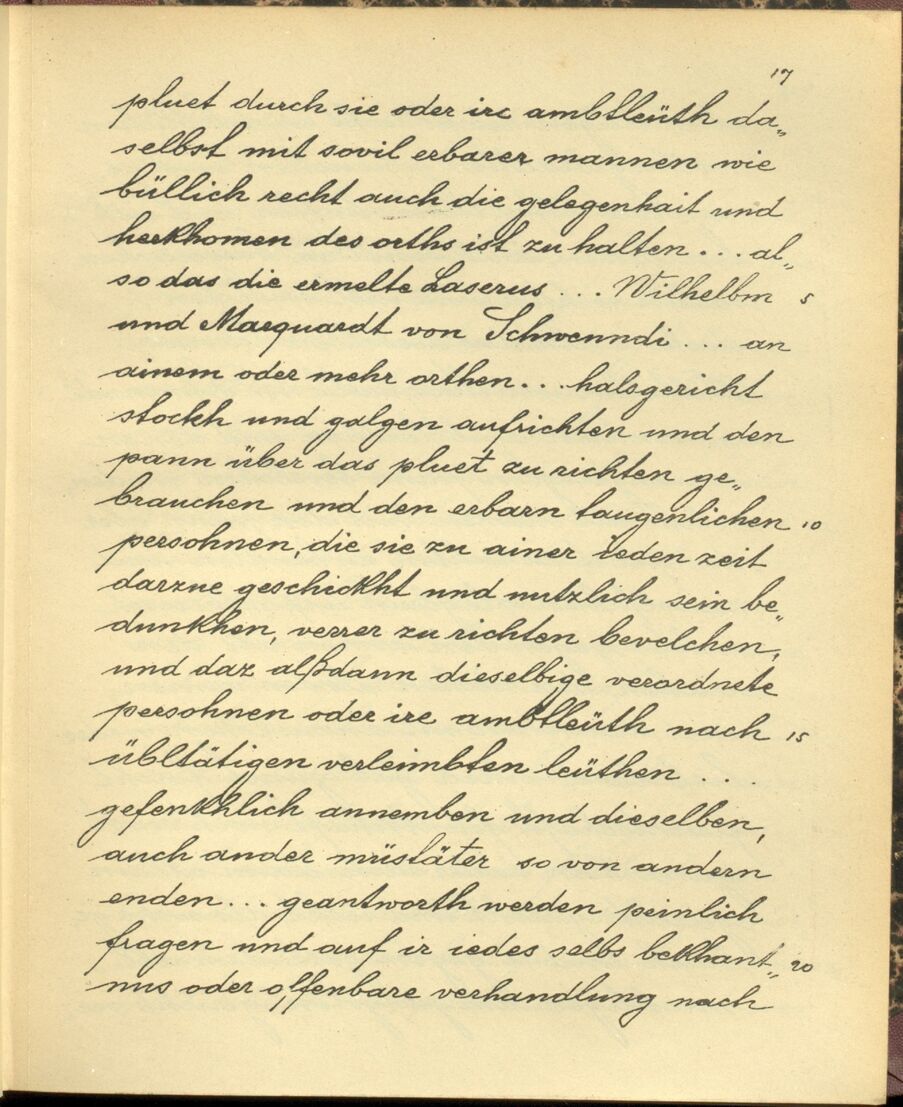 17
pluet durch sie oder ire ambtleüth da„
selbst mit sovil erbarer mannen wie
büllich recht auch die gelegenhait und
herkhomen des orths ist zu halten ... al„
so das die ermelte Laserus ... Wilhelbm 5
und Marquardt von Schwenndi ... an
ainem oder mehr orthen ... halsgericht
stockh und galgen aufrichten und den
pann über das pluet zu richten ge„
brauchen und den erbarn taugenlichen 10
persohnen, die sie zu ainer ieden zeit
darzue geschickht und nutzlich sein be„
dunkhen, verrer zu richten bevelchen,
und daz alßdann dieselbige verordnete
persohnen oder ire ambtleüth nach 15
übltätigen verleimbten leüthen ...
gefenkhlich annemben und dieselben,
auch ander müstäter so von andern
enden ... geantworth werden peinlich
fragen und auf ir iedes selbs bekhant„ 20
nus oder offenbare verhandlung nach